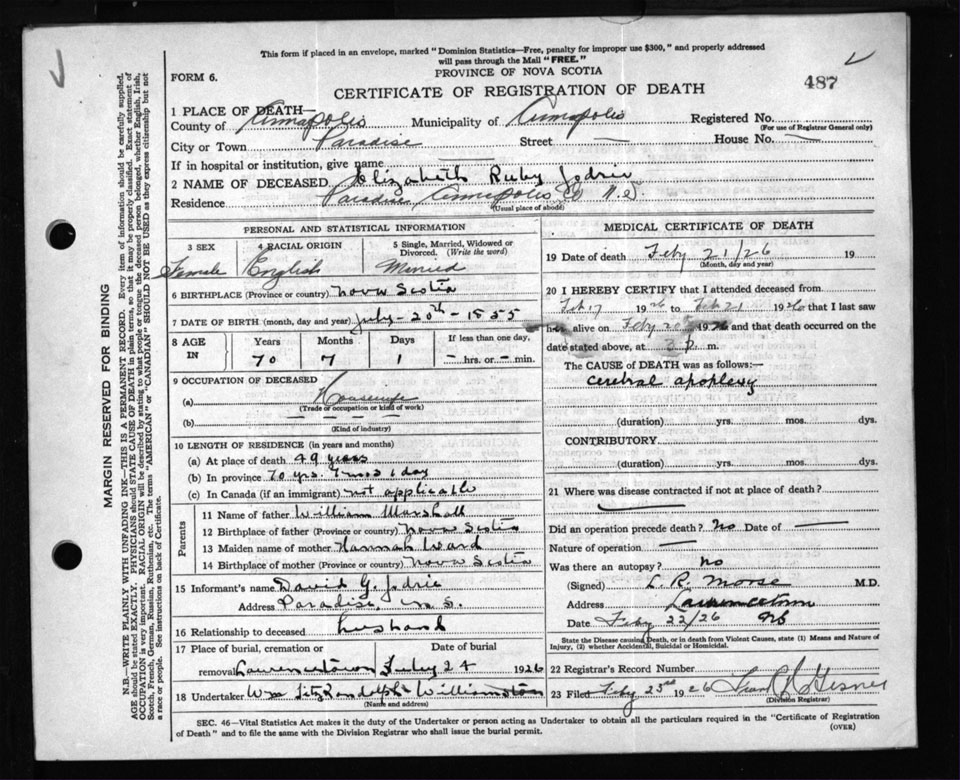 This form if placed in an envelope, marked "Dominion Statistics—Free, penalty for improper use $300," and properly addressed
will pass through the Mail "FREE."
FORM 6.
PROVINCE OF NOVA SCOTIA
487
CERTIFICATE OF REGISTRATION OF DEATH
1 PLACE OF DEATH—
County of Annapolis Municipality of Annapolis Registered No.
(For use of Registrar General only)
City or Town Paradise Street — House No. —
If in hospital or institution, give name
2 NAME OF DECEASED Elizabeth Ruby Jodrie
Residence Paradise Annapolis Co N.S
(Usual place of abode)
PERSONAL AND STATISTICAL INFORMATION
3 SEX 4 RACIAL ORIGIN 5 Single, Married, Widowed or Divorced. (Write the word)
Female English Married
6 BIRTHPLACE (Province or country) Nova Scotia
7 DATE OF BIRTH (month, day and year) July - 20th - 1855
8 AGE IN Years Months Days If less than one day,
70 7 1 — hrs. or — min.
9 OCCUPATION OF DECEASED
(a) Housewife
(Trade or occupation or kind of work)
(b)
(Kind of industry)
10 LENGTH OF RESIDENCE (in years and months)
(a) At place of death 49 years
(b) In province 70 yrs. 7 mos 1 day
(c) In Canada (if an immigrant) not applicable
Parents
11 Name of father William Marshall
12 Birthplace of father (Province or country) Nova Scotia
13 Maiden name of mother Hannah Ward
14 Birthplace of mother (Province or country) Nova Scotia
15 Informant's name David G. Jodrie
Address Paradise, N.S.
16 Relationship to deceased husband
17 Place of burial, cremation or removal Date of burial
Lawrencetown Feby 24 1926
18 Undertaker Wm FitzRandolph Williamston
(Name and address)
MEDICAL CERTIFICATE OF DEATH
19 Date of death Feby 21/26 19
(Month, day and year)
20 I HEREBY CERTIFY that I attended deceased from
Feb 17 1926 to Feb 21 1926 that I last saw
her alive on Feby 20 1926 and that death occurred on
the date stated above, at 3 p. m.
The CAUSE of DEATH was as follows:—
cerebral apoplexy
(duration) yrs. mos. dys.
CONTRIBUTORY
(duration) yrs. mos. dys.
21 Where was disease contracted if not at place of death?
Did an operation precede death? No Date of —
Nature of operation —
Was there an autopsy? no
(Signed) L. R. Morse M.D.
Address Lawrencetown
Date Feby 22/26 NS
State the Disease causing Death, or in death from Violent Causes, state (1) Means and Nature of
Injury, (2) whether Accidental, Suicidal or Homicidal.
22 Registrar's Record Number
23 Filed Feby 23rd 1926 Gesner
(Division Registrar)
SEC. 46—Vital Statistics Act makes it the duty of the Undertaker or person acting as Undertaker to obtain all the particulars required in the "Certificate of Registration
of Death" and to file the same with the Division Registrar who shall issue the burial permit.
(OVER)
MARGIN RESERVED FOR BINDING
N.B.—WRITE PLAINLY WITH UNFADING INK—THIS IS A PERMANENT RECORD. Every item of information should be carefully supplied.
AGE should be stated EXACTLY. PHYSICIANS should STATE CAUSE OF DEATH in plain terms, so that it may be properly classified. Exact statement of
OCCUPATION is very important. RACIAL ORIGIN will be described by stating to what people or tongue the deceased person belonged, whether English, Irish,
Scotch, French, German, Russian, Ruthenian, etc. The terms "AMERICAN" or "CANADIAN" SHOULD NOT BE USED as they express citizenship but not
a race or people. See instructions on back of Certificate.